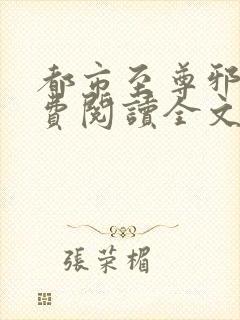 都市至尊邪
費閱讀全文
張荣楣